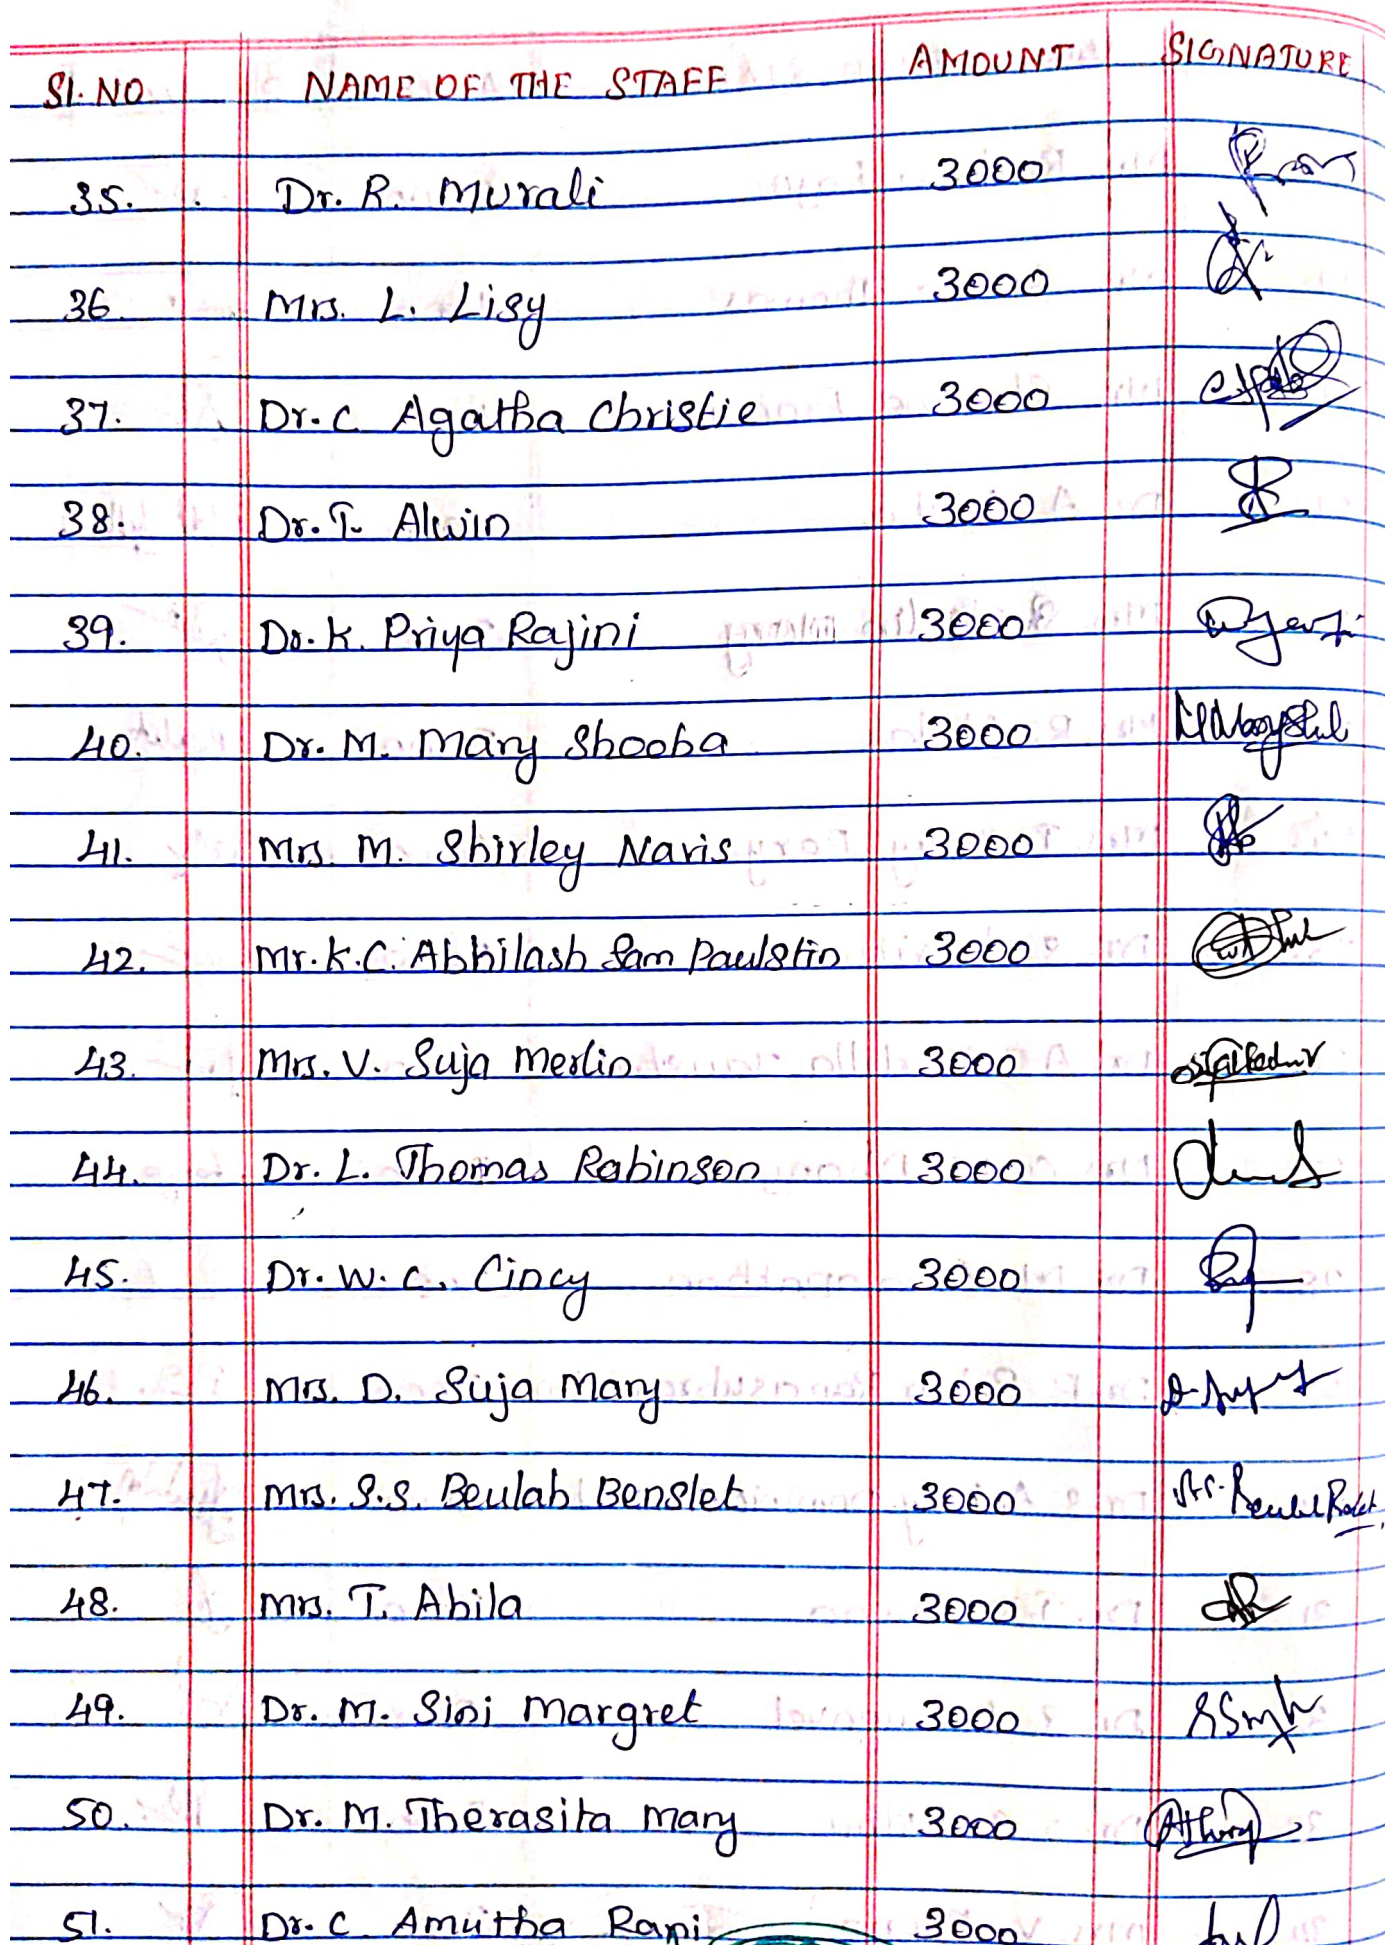 Sl. NO NAME OF THE STAFF AMOUNT SIGNATURE
35. Dr. R. Murali 3000
36. Mrs. L. Lisy 3000
37. Dr. C Agatha Christie 3000
38. Dr. T. Alwin 3000
39. Dr. K. Priya Rajini 3000
40. Dr. M. Mary Shooba 3000
41. Mrs. M. Shirley Navis 3000
42. Mr. K.C. Abhilash Sam Paulstin 3000
43. Mrs. V. Suja Merlin 3000
44. Dr. L. Thomas Robinson 3000
45. Dr. W. C. Cincy 3000
46. Mrs. D. Suja Mary 3000
47. Mrs. S.S. Beulah Benslet 3000
48. Mrs. T. Abila 3000
49. Dr. M. Sini Margret 3000
50. Dr. M. Therasita Mary 3000
51. Dr. C Amutha Rani 3000